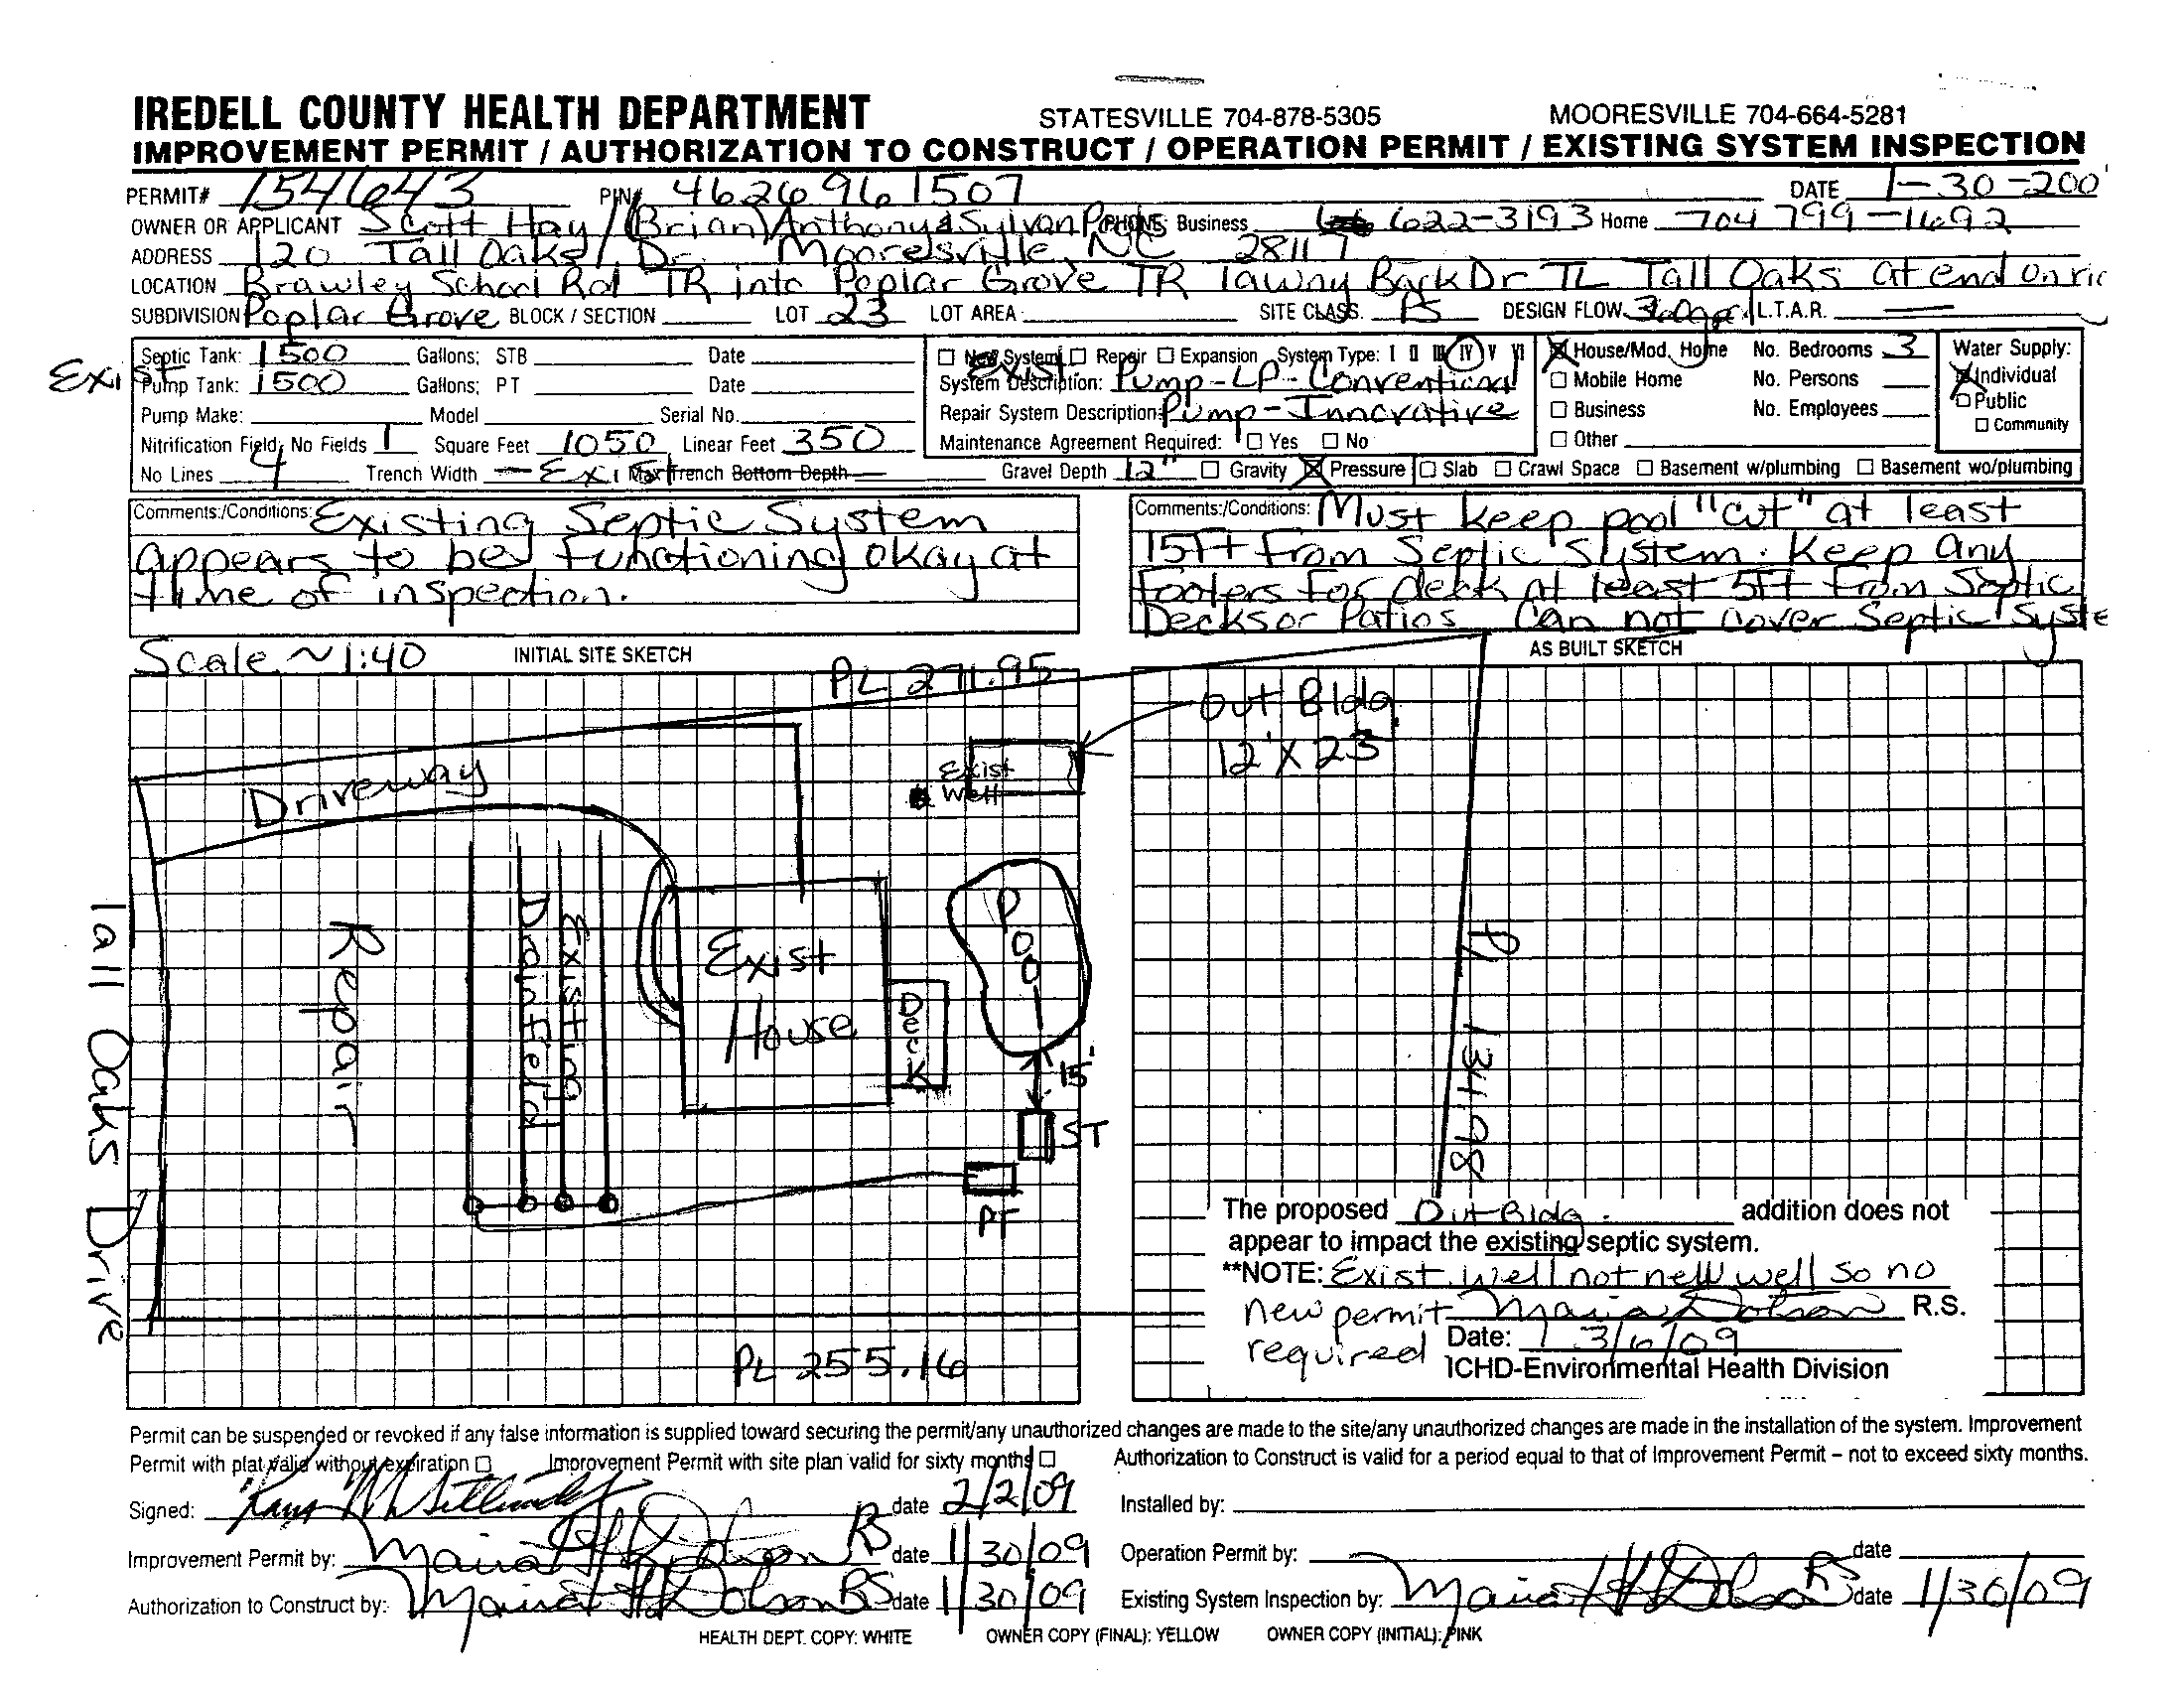 IREDELL COUNTY HEALTH DEPARTMENT STATESVILLE 704-878-5305 MOORESVILLE 704-664-5281
IMPROVEMENT PERMIT / AUTHORIZATION TO CONSTRUCT / OPERATION PERMIT / EXISTING SYSTEM INSPECTION
PERMIT# 154643 PIN# 4626961507 DATE 1-30-200
OWNER OR APPLICANT Scott Hay / (Brian) Anthony & Sylvan Pools PHONE: Business 622-3193 Home 704 799-1692
ADDRESS 120 Tall Oaks Dr. Mooresville, NC 28117
LOCATION Brawley School Rd TR into Poplar Grove TR Back Dr TL Tall Oaks at end on ri
SUBDIVISION Poplar Grove BLOCK / SECTION LOT 23 LOT AREA SITE CLASS. PS DESIGN FLOW L.T.A.R. —
Exist
Septic Tank: 1500 Gallons: STB Date
Pump Tank: 1500 Gallons: PT Date
Pump Make: Model Serial No.
Nitrification Field: No Fields 1 Square Feet 1050 Linear Feet 350
No Lines 4 Trench Width — Exist Max Trench Bottom Depth Gravel Depth 12" Gravity Pressure Slab Crawl Space Basement w/plumbing Basement wo/plumbing
New System Repair Expansion System Type: I II III IV V VI
Exist
System Description: Pump-LP-Conventional
Repair System Description: Pump-Innovative
Maintenance Agreement Required: Yes No
House/Mod. Home No. Bedrooms 3
Mobile Home No. Persons
Business No. Employees
Other
Water Supply:
Individual
Public
Community
Comments:/Conditions: Existing Septic System
appears to be functioning okay at
time of inspection.
Comments:/Conditions: Must keep pool "cut" at least
15ft from Septic System. Keep any
footers for deck at least 5ft from Septic
Decks or Patios Can not cover Septic Syste
Scale ~ 1:40 INITIAL SITE SKETCH
AS BUILT SKETCH
PL 271.95
Out Bldg.
12' X 23'
Driveway
Exist
Well
Tall Oaks Drive
Repair
Existing
Drainfield
Exist
House
Deck
Pool
15'
ST
PT
PL 134.98
PL 255.16
The proposed Out Bldg. addition does not
appear to impact the existing septic system.
**NOTE: Exist. well not new well so no
new permit Maria Dotson R.S.
required Date: 3/6/09
ICHD-Environmental Health Division
Permit can be suspended or revoked if any false information is supplied toward securing the permit/any unauthorized changes are made to the site/any unauthorized changes are made in the installation of the system. Improvement
Permit with plat valid without expiration Improvement Permit with site plan valid for sixty months Authorization to Construct is valid for a period equal to that of Improvement Permit – not to exceed sixty months.
Signed: date 2/2/09 Installed by:
Improvement Permit by: Maria H Dotson RS date 1/30/09 Operation Permit by: date
Authorization to Construct by: Maria H Dotson RS date 1/30/09 Existing System Inspection by: Maria H Dotson RS date 1/30/09
HEALTH DEPT. COPY: WHITE OWNER COPY (FINAL): YELLOW OWNER COPY (INITIAL): PINK